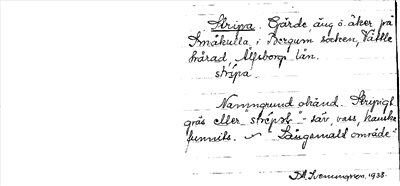 Stripa. Gärde äng o. åker på
Småkulla i Bergum socken, Vättle
härad, Älfsborgs län.
strípa
Namngrund okänd. Stripigt
gräs eller "                " - säv, vass, kanske
funnits. Långsmalt område"
1938.